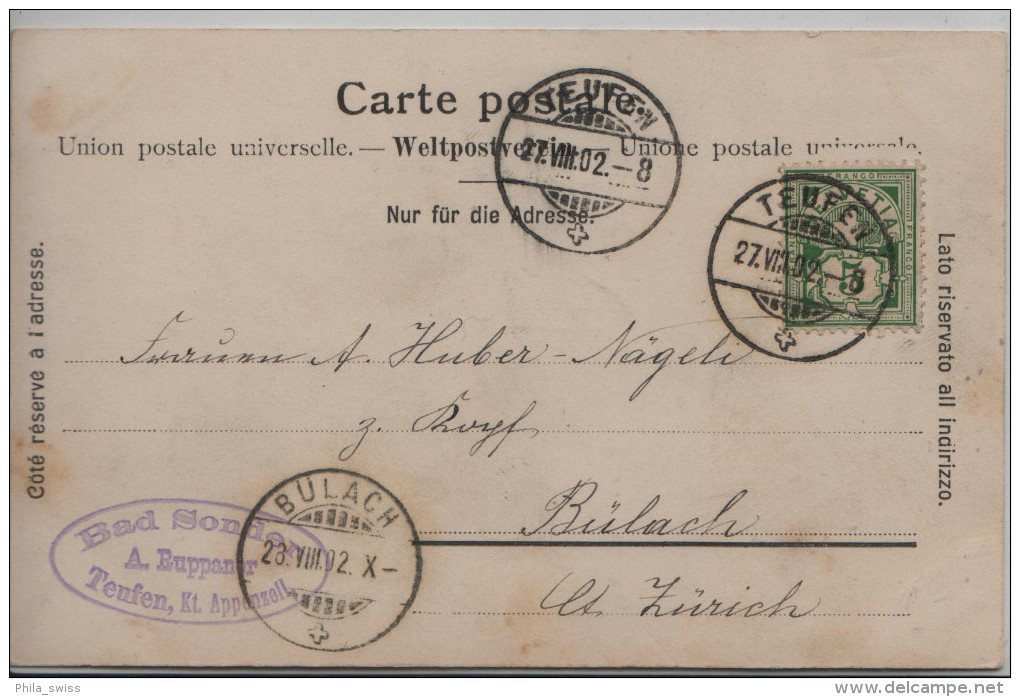 Carte postale.
Union postale universelle. — Weltpostverein — Unione postale universale.
Nur für die Adresse.
TEUFEN
27.VIII.02.–8
TEUFEN
27.VIII.02.–8
FRANCO
HELVETIA
FRANCO
5
Côté réservé à l'adresse.
Lato riservato all indirizzo.
Frauen A. Huber-Nägeli
z. Kopf
Bülach
Ct. Zürich
BÜLACH
28.VIII.02. X–
Bad Sonder
A. Ruppaner
Teufen, Kt. Appenzell
Phila_swiss
www.delcampe.net